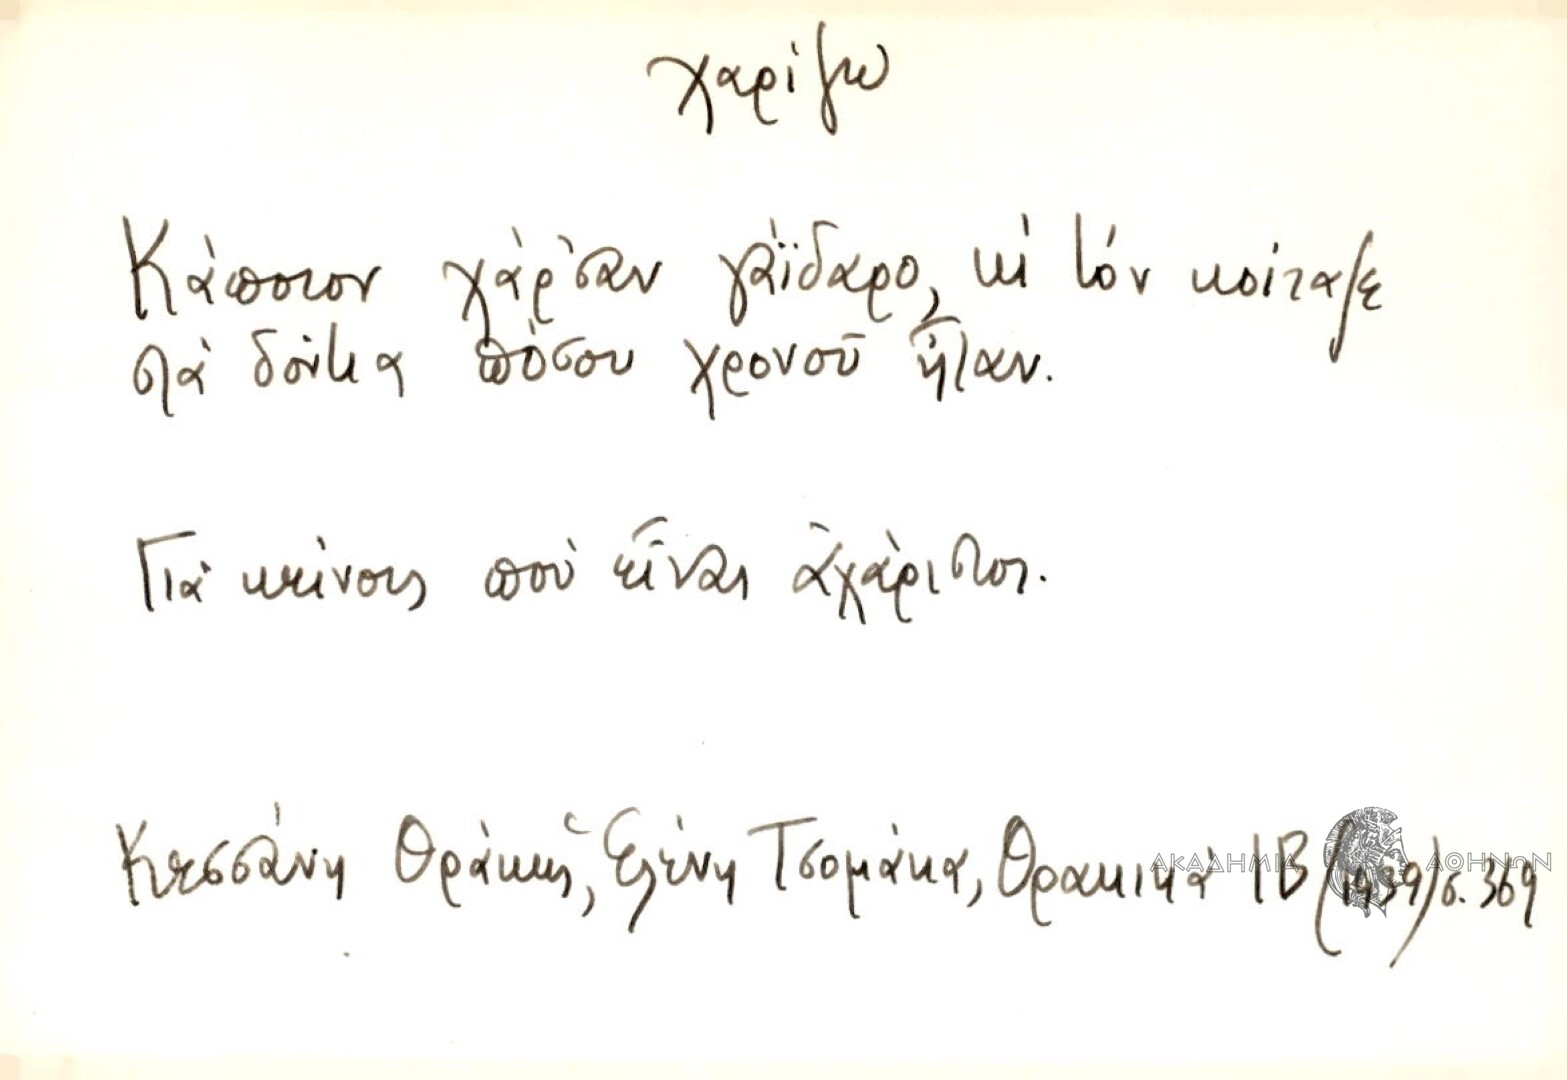 χαρίζω
Κάποιον χάρ'σαν γάϊδαρο, κι τόν κοίταξε
στά δόντια πόσου χρονοῦ ἦταν.
Γιά κείνους πού εἶναι ἀχάριστοι.
Κεσσάνη Θράκης, Ἑλένη Τσομάκα, Θρακικά ΙΒ (1939) σ. 369
ΑΚΑΔΗΜΙΑ ΑΘΗΝΩΝ